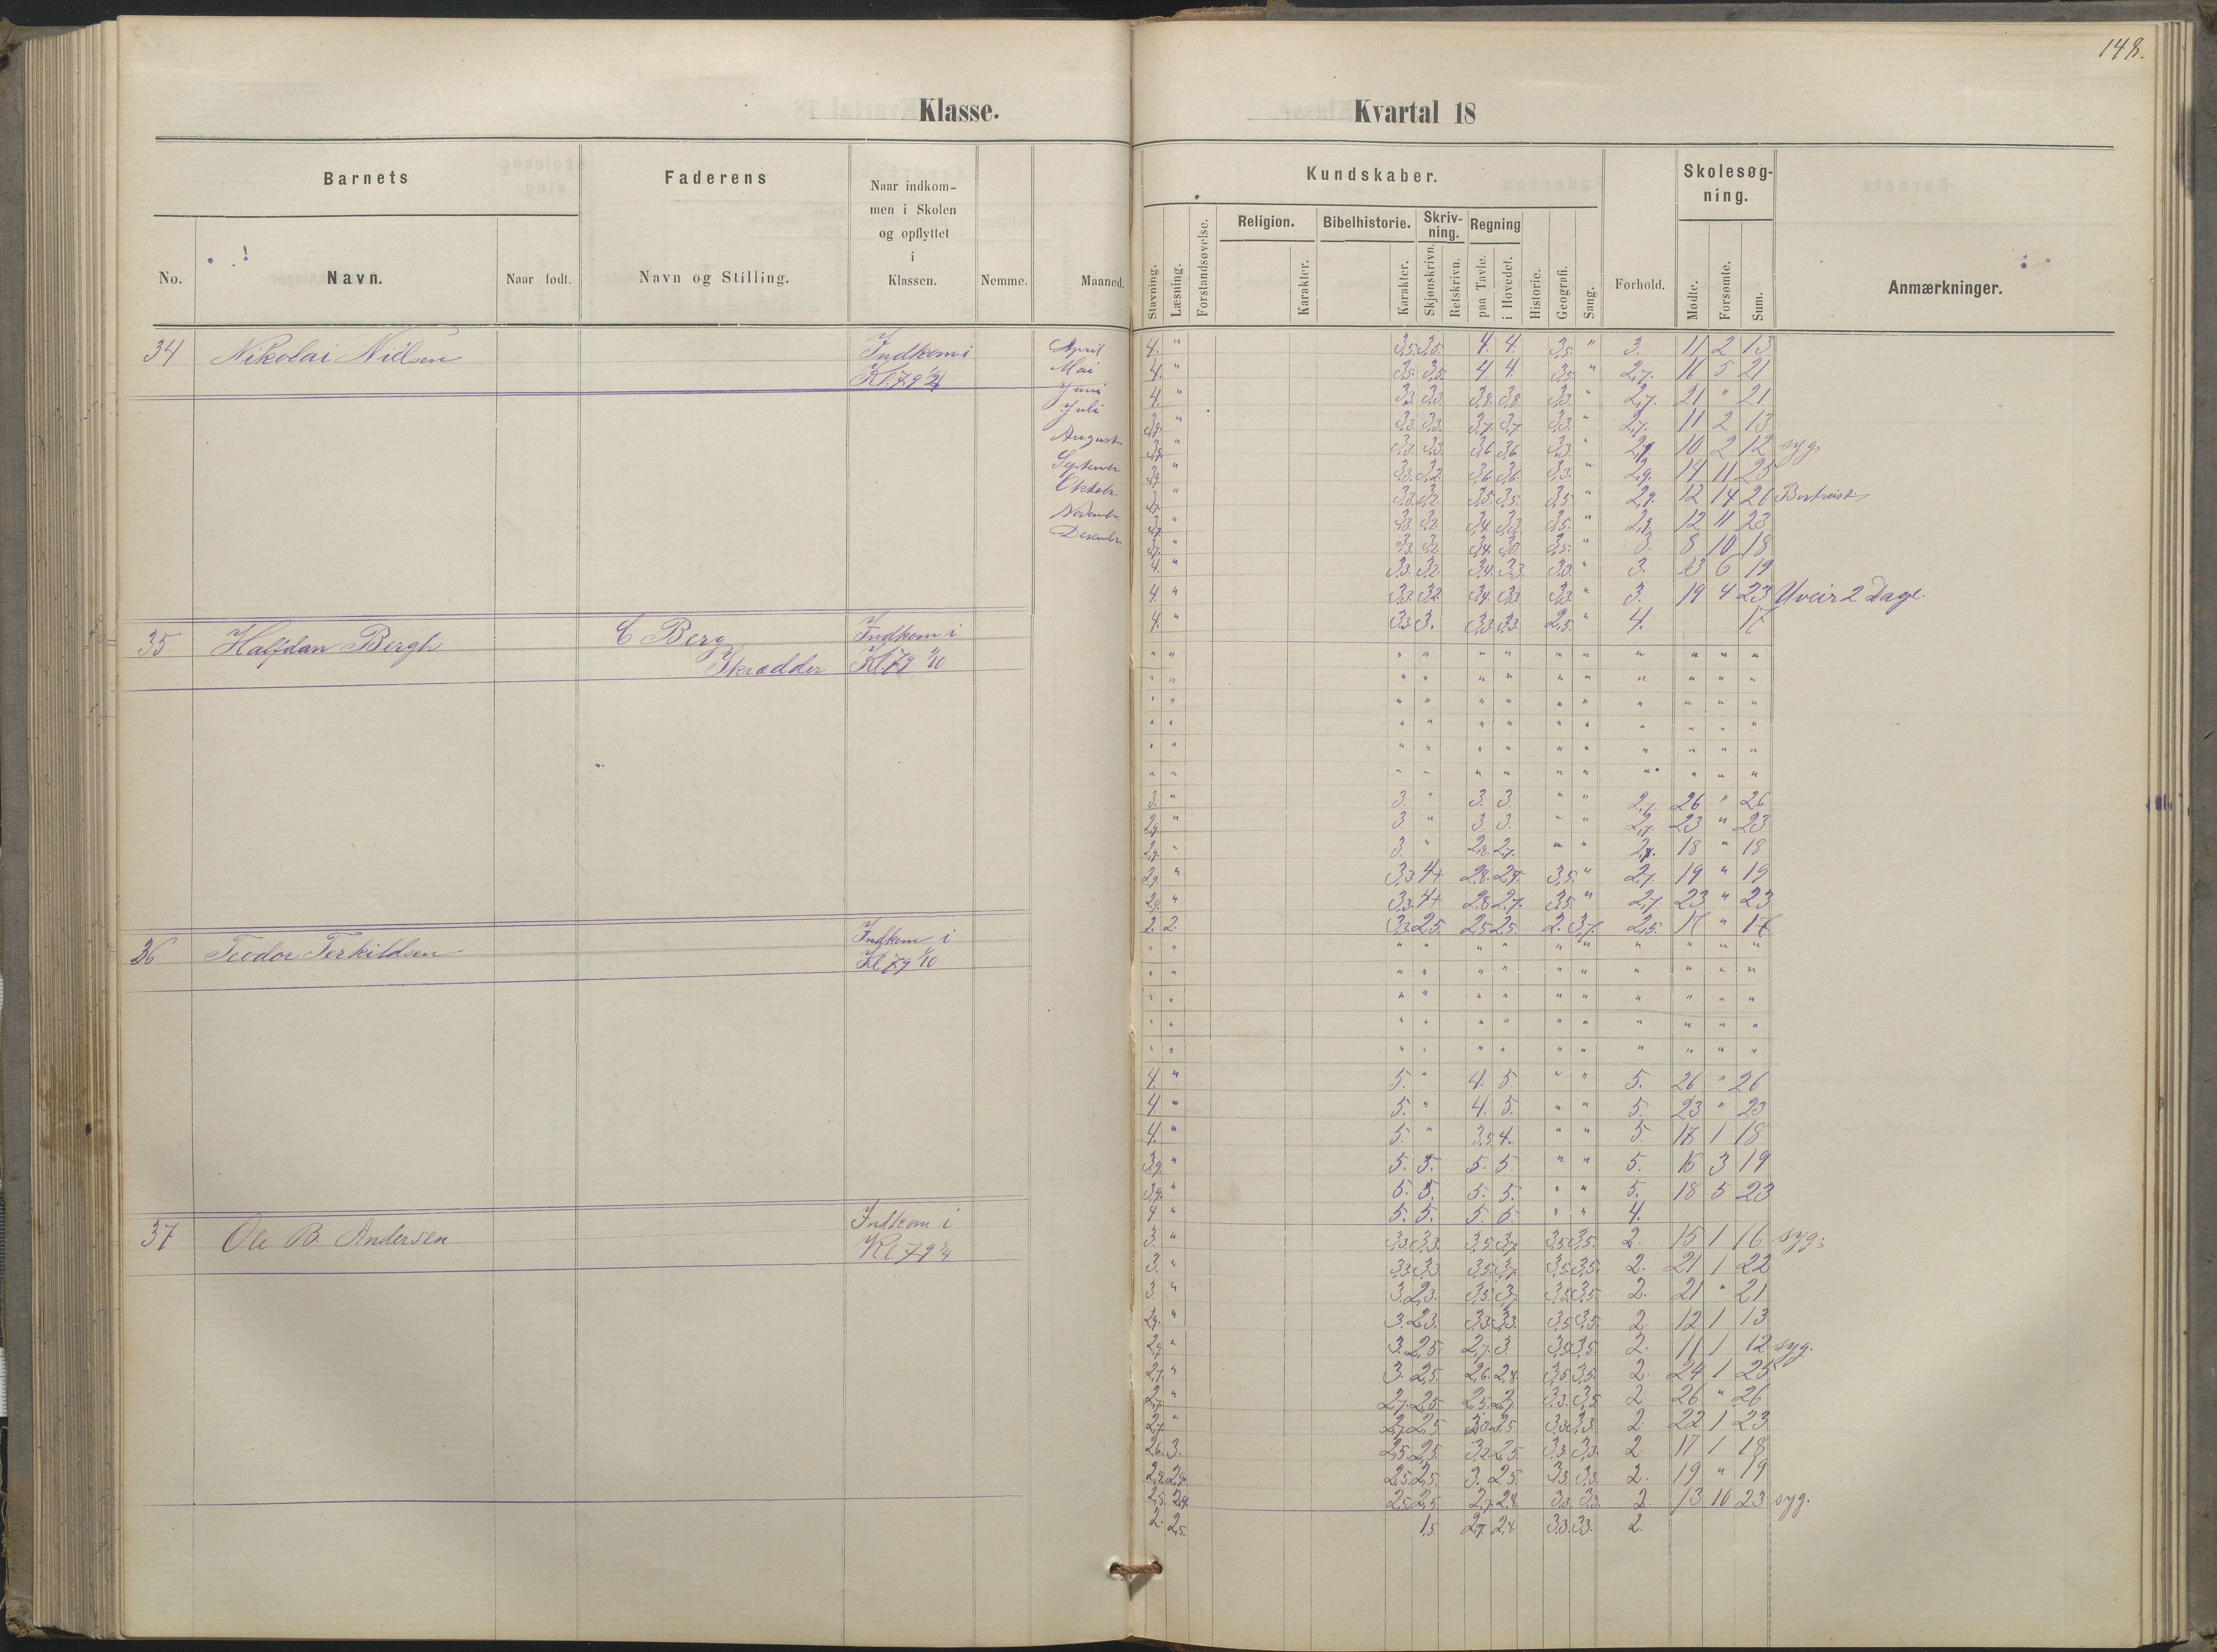 148.
Klasse.
Kvartal 18
Barnets
Faderens
Naar indkom-
men i Skolen
og opflyttet
i
Klassen.
No.
Navn.
Naar født.
Navn og Stilling.
Nemme.
Maaned.
Kundskaber.
Stavning.
Læsning.
Forstandsøvelse.
Religion.
Karakter.
Bibelhistorie.
Karakter.
Skriv-
ning.
Skjønskrivn.
Retskrivn.
Regning
paa Tavle.
i Hovedet.
Historie.
Geografi.
Sang.
Forhold.
Skolesøg-
ning.
Mødte.
Forsømte.
Sum.
Anmærkninger.
34 Nikolai Nielsen Indkom i
Kl. 79
April
Mai
Juni
Juli
August
Septembr
Oktobr.
Novembr.
Desembr.
4. " 3,5. 3,5. 4. 4. 3,5. " 3. 11 2 13
4. " 3,5. 3,5. 4. 4. 3,5. " 2,7. 16 5 21
4. " 3,3. 3,3. 3,8. 3,8. 3,3. " 2,7. 21 " 21
" 3,3. 3,3. 3,7. 3,7. 3,3. " 2,7. 11 2 13
" 3,3. 3,3. 3,6 3,6 3,3. " 10 2 12 syg.
" 3,3. 3,2. 3,6 3,6. 3,3. " 2,9. 14 11 25
" 3,3. 3,2. 3,5. 3,5. 3,5 " 2,9. 12 14 26 Bortreist
" 3,3. 3,2. 3,4 3,3. 3,5. " 2,9. 12 11 23
" 3,3. 3,2. 3,4. 3,3. 3,5. " 3. 8 10 18
4. " 3,3. 3,2. 3,4. 3,3. 3,3. " 3. 13 6 19
4. " 3,3. 3,2. 3,4. 3,3 3,3. " 3. 19 4 23 Uveir 2 Dage.
4. " 3,3. 3. 3,3 3,3. 2,5. " 4. 17
35 Halfdan Bergh C Berg Indkom i
Skrædder Kl. 79 1/10
3. " 3. " 3. 3. " " 2,7 26 " 26
2,9. " 3 " 3 3. " " 2,7. 23 " 23
2,9. " 3. " 2,8. 2,7. " " 18 " 18
2,9. " 3,3 4+ 2,8. 2,7. 3,5. " 2,7. 19 " 19
2,9. " 3,3. 4+ 2,8 2,7. 3,5. " 2,7 23 " 23
2. 2. 3,3 2,5. 2,5 2,5. 2. 3,7. 2,5. 17 " 17
36 Teodor Terkildsen Indkom i
Kl. 79 1/10
4. " 5. " 4. 5. " " 5. 26 " 26
4. " 5. " 4. 5. " " 5. 23 " 23
4. " 5. " 3,5 4. " " 5. 17 1 18
3,9. " 5. 5. 5. 5. " " 5. 16 3 19
3,9. " 5. 5. 5. 5. " " 5. 18 5 23
4 " 5. 5. 5. 5. " " 4.
37 Ole B. Andersen Indkom i
Kl 79 1/4
3. " 3,3. 3,3. 3,5. 3,7. 3,5 3,5. 2. 15 1 16 syg.
3. " 3,3. 3,3 3,5. 3,7. 3,5. 3,5. 2. 21 1 22
3. " 3. 2,3. 3,5. 3,7. 3,5 3,5. 2. 21 " 21
2,9. " 3. 2,3. 3,3. 3,3. 3,5 3,5. 2 12 1 13
2,9 " 3. 2,5. 2,7. 3. 3,5 3,5 2. 11 1 12 syg.
2,7. " 3. 2,5. 2,6. 2,8. 3,5 3,5. 2 24 1 25
2,7 " 2,7. 2,5 2,5. 2,7. 3,3. 3,5 2 26 " 26
2,7 " 2,7. 2,5 2,5 3,3. 3,3 2 22 1 23
2,6. 3. 2,5. 2,5. 3,2. 2,5. 3,3. 3,3. 2. 17 1 18
2,9. 2,5. 2,5. 3. 2,5. 3,3. 3,3. 2. 19 " 19
2,5. 2,9. 2,5. 2,5. 2,7. 2,8. 3,3. 3,3. 2. 13 10 23 syg.
2. 2,5. 1,5. 2,7. 2,8. 3,3. 3,3. 2.